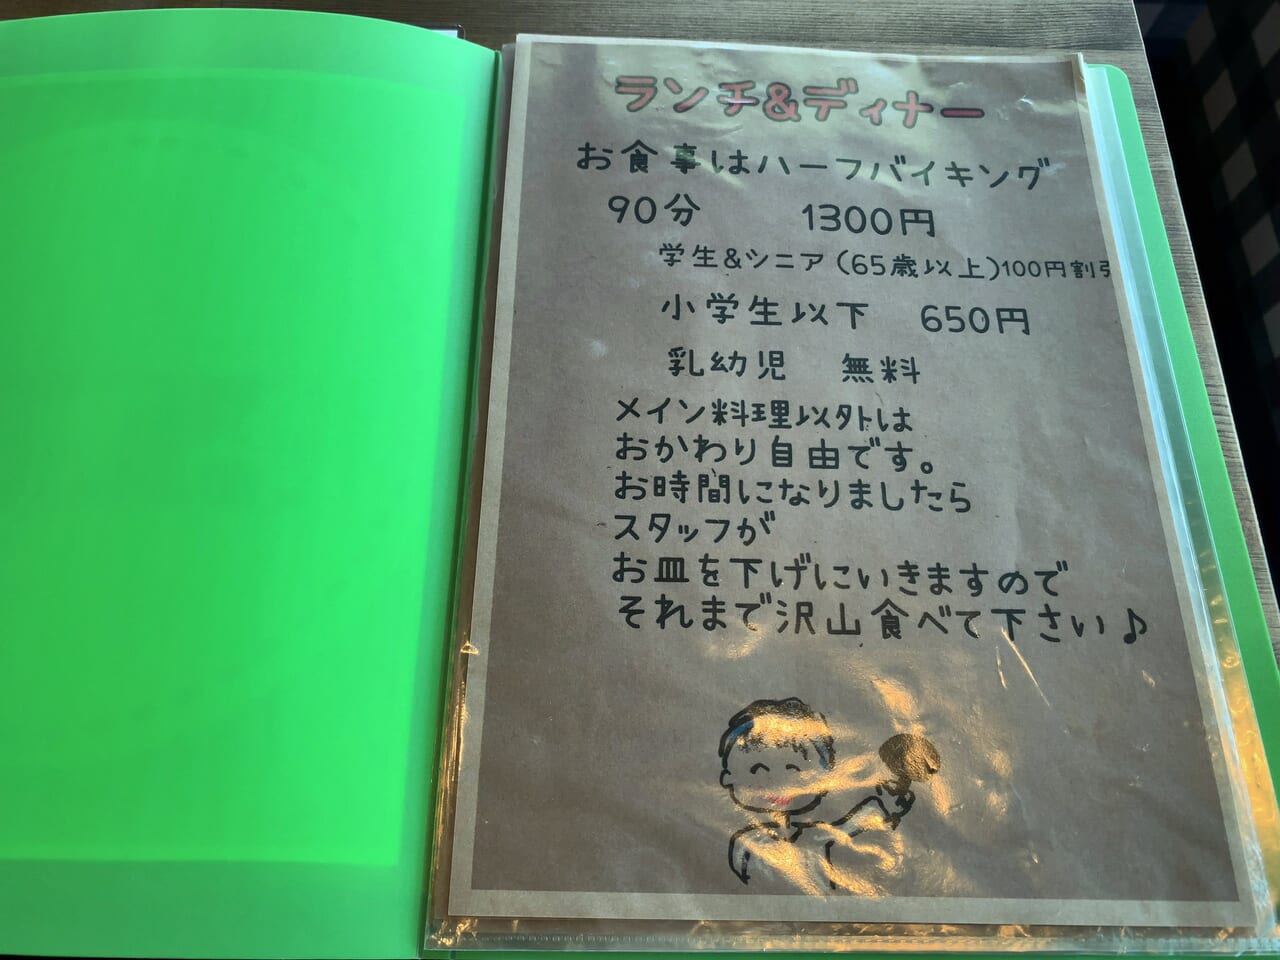 ランチ&ディナー
お食事はハーフバイキング
90分 1300円
学生&シニア(65歳以上)100円割引
小学生以下 650円
乳幼児 無料
メイン料理以外は
おかわり自由です。
お時間になりましたら
スタッフが
お皿を下げにいきますので
それまで沢山食べて下さい♪